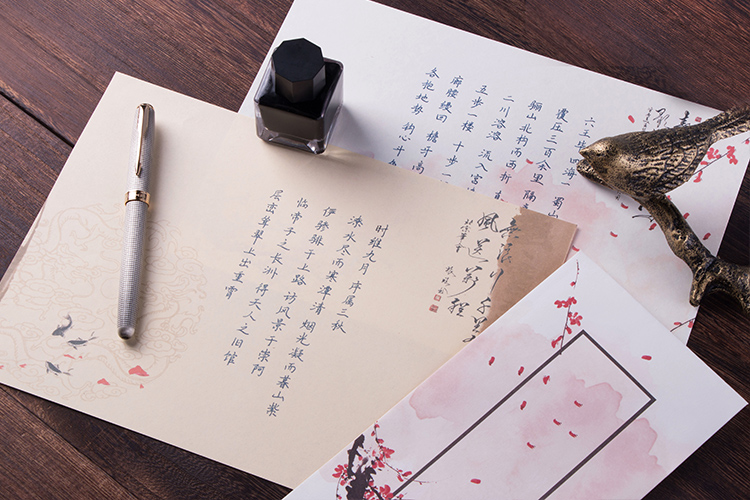 六王毕 四海一 蜀山
覆压三百余里 隔
骊山北构而西折
二川溶溶 流入宫
五步一楼 十步一
廊腰缦回 檐牙高
各抱地势 钩心斗
时维九月 序属三秋
潦水尽而寒潭清 烟光凝而暮山紫
俨骖騑于上路 访风景于崇阿
临帝子之长洲 得天人之旧馆
层峦耸翠 上出重霄